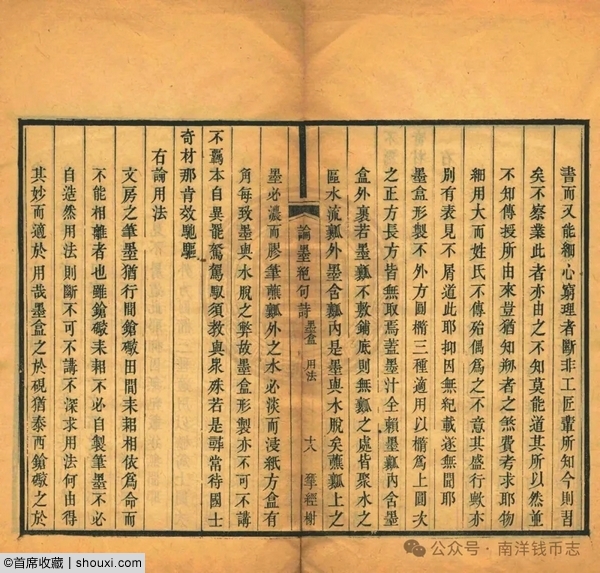 書而又能細心窮理者斷非工匠輩所知今則習
矣不察業此者亦由之不知莫能道其所以然並
不知傳授所由來豈猶知刱者之煞費考求耶物
細用大而姓氏不傳殆偶爲之不意其盛行歟亦
別有表見不屑道此耶抑因無紀載遂無聞耶
墨盒形製不外方圓橢三種適用以橢爲上圓次
之正方長方皆無取焉蓋墨汁全賴墨瓤內含墨
盒外裹若墨瓤不敷鋪底則無瓤之處皆聚水之
區水流瓤外墨含瓤內是墨與水脫矣蘸瓤上之
論墨絕句詩 墨盒 用法 十八 經榭
墨必濃而膠筆蘸瓤外之水必淡而浸紙方盒有
角每致墨與水脫之弊故墨盒形製亦不可不講
不羈本自異罷駑駕馭須教與衆殊若是尋常待國士
奇材那肯效馳驅
右論用法
文房之筆墨猶行間鎗礮田間耒耜相依爲命而
不能相離者也雖鎗礮耒耜不必自製筆墨不必
自造然用法則斷不可不講不深求用法何由得
其妙而適於用哉墨盒之於硯猶泰西鎗礮之於
@首席收藏 | shouxi.com
公众号·南洋钱币志